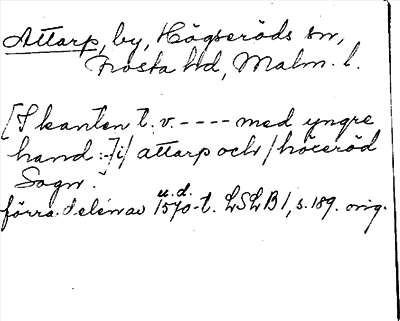 Attarp, by, Högseröds sn,
Frosta hd, Malm. l.
[I kanten t. v. ---- med yngre
hand:-] i/ attarp och / höceröd
Sogn.
förra delen av 1570-t. LSLB 1, s. 189. orig.
u.d.